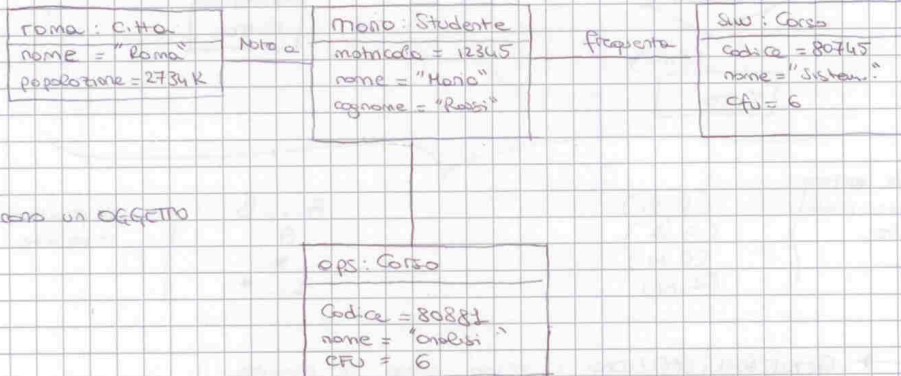 roma : Città
nome = "Roma"
popolazione = 2734K
Nato a
mario : Studente
matricola = 12345
nome = "Mario"
cognome = "Rossi"
frequenta
siw : Corso
codice = 80745
nome = "Sistem."
cfu = 6
un OGGETTO
aps : Corso
Codice = 80881
nome = "analisi"
CFU = 6